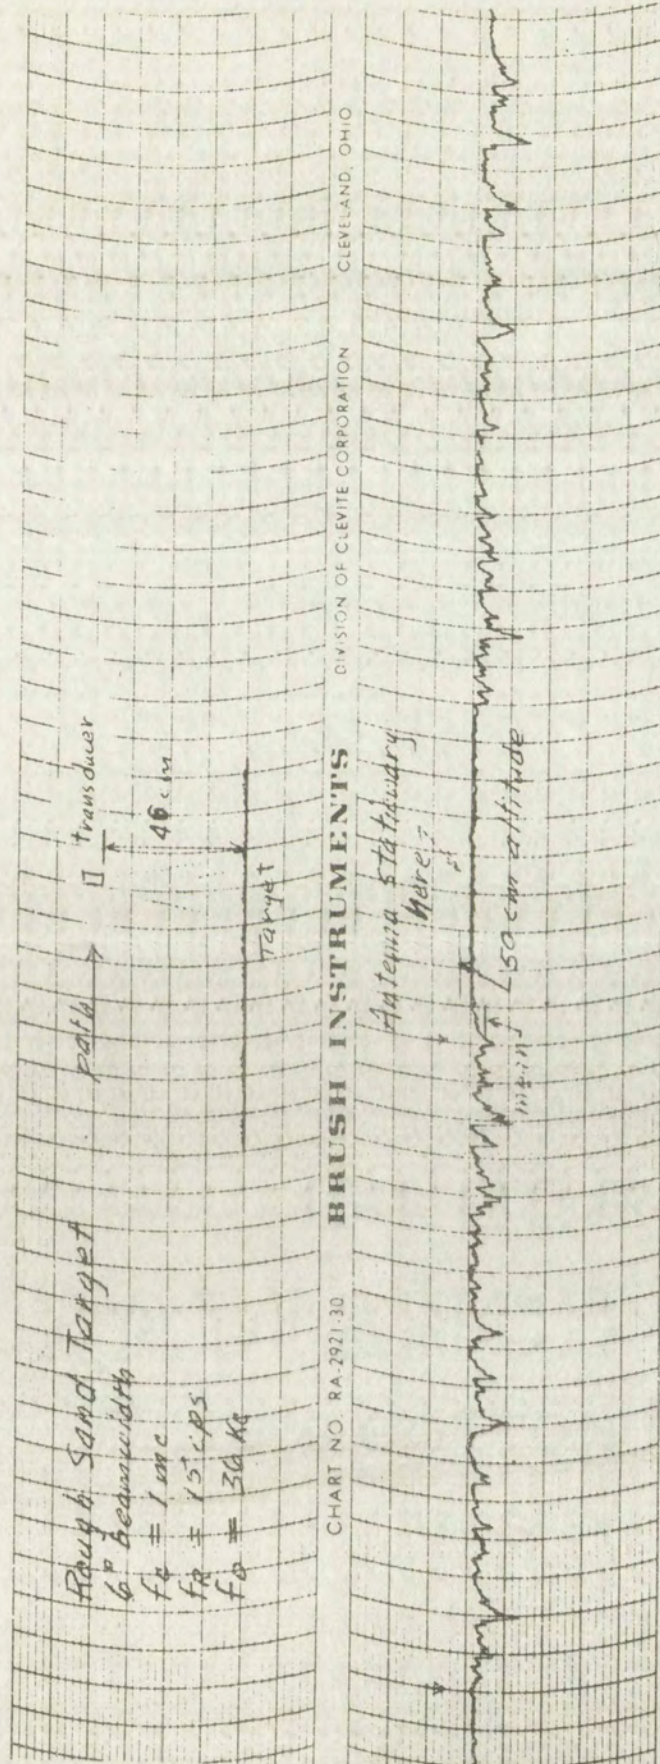 Rough Sand Target
6° beamwidth
fc = 1 mc
fR = 15 cps
fo = 36 Kc
path
transducer
46 cm
Target
CHART NO. RA-2921-30 BRUSH INSTRUMENTS DIVISION OF CLEVITE CORPORATION CLEVELAND, OHIO
Antenna stationary
here
50 cm altitude